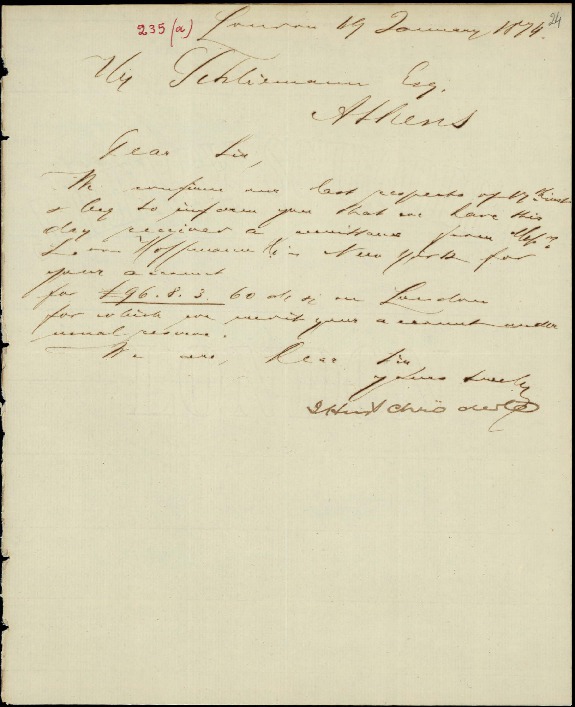 24
235 (a)
London 19 January 1874.
Hy Schliemann Esq.
Athens
Dear Sir,
We confirm our last respects of 17th inst
& beg to inform you that we have this
day received a remittance from Messrs
Hoffmann & Co New York for
your account
for £96.8.3. 60 d/s on London
for which we credit your account under
usual reserve.
We are, Dear Sir
yours truly
J Henry Schröder & Co